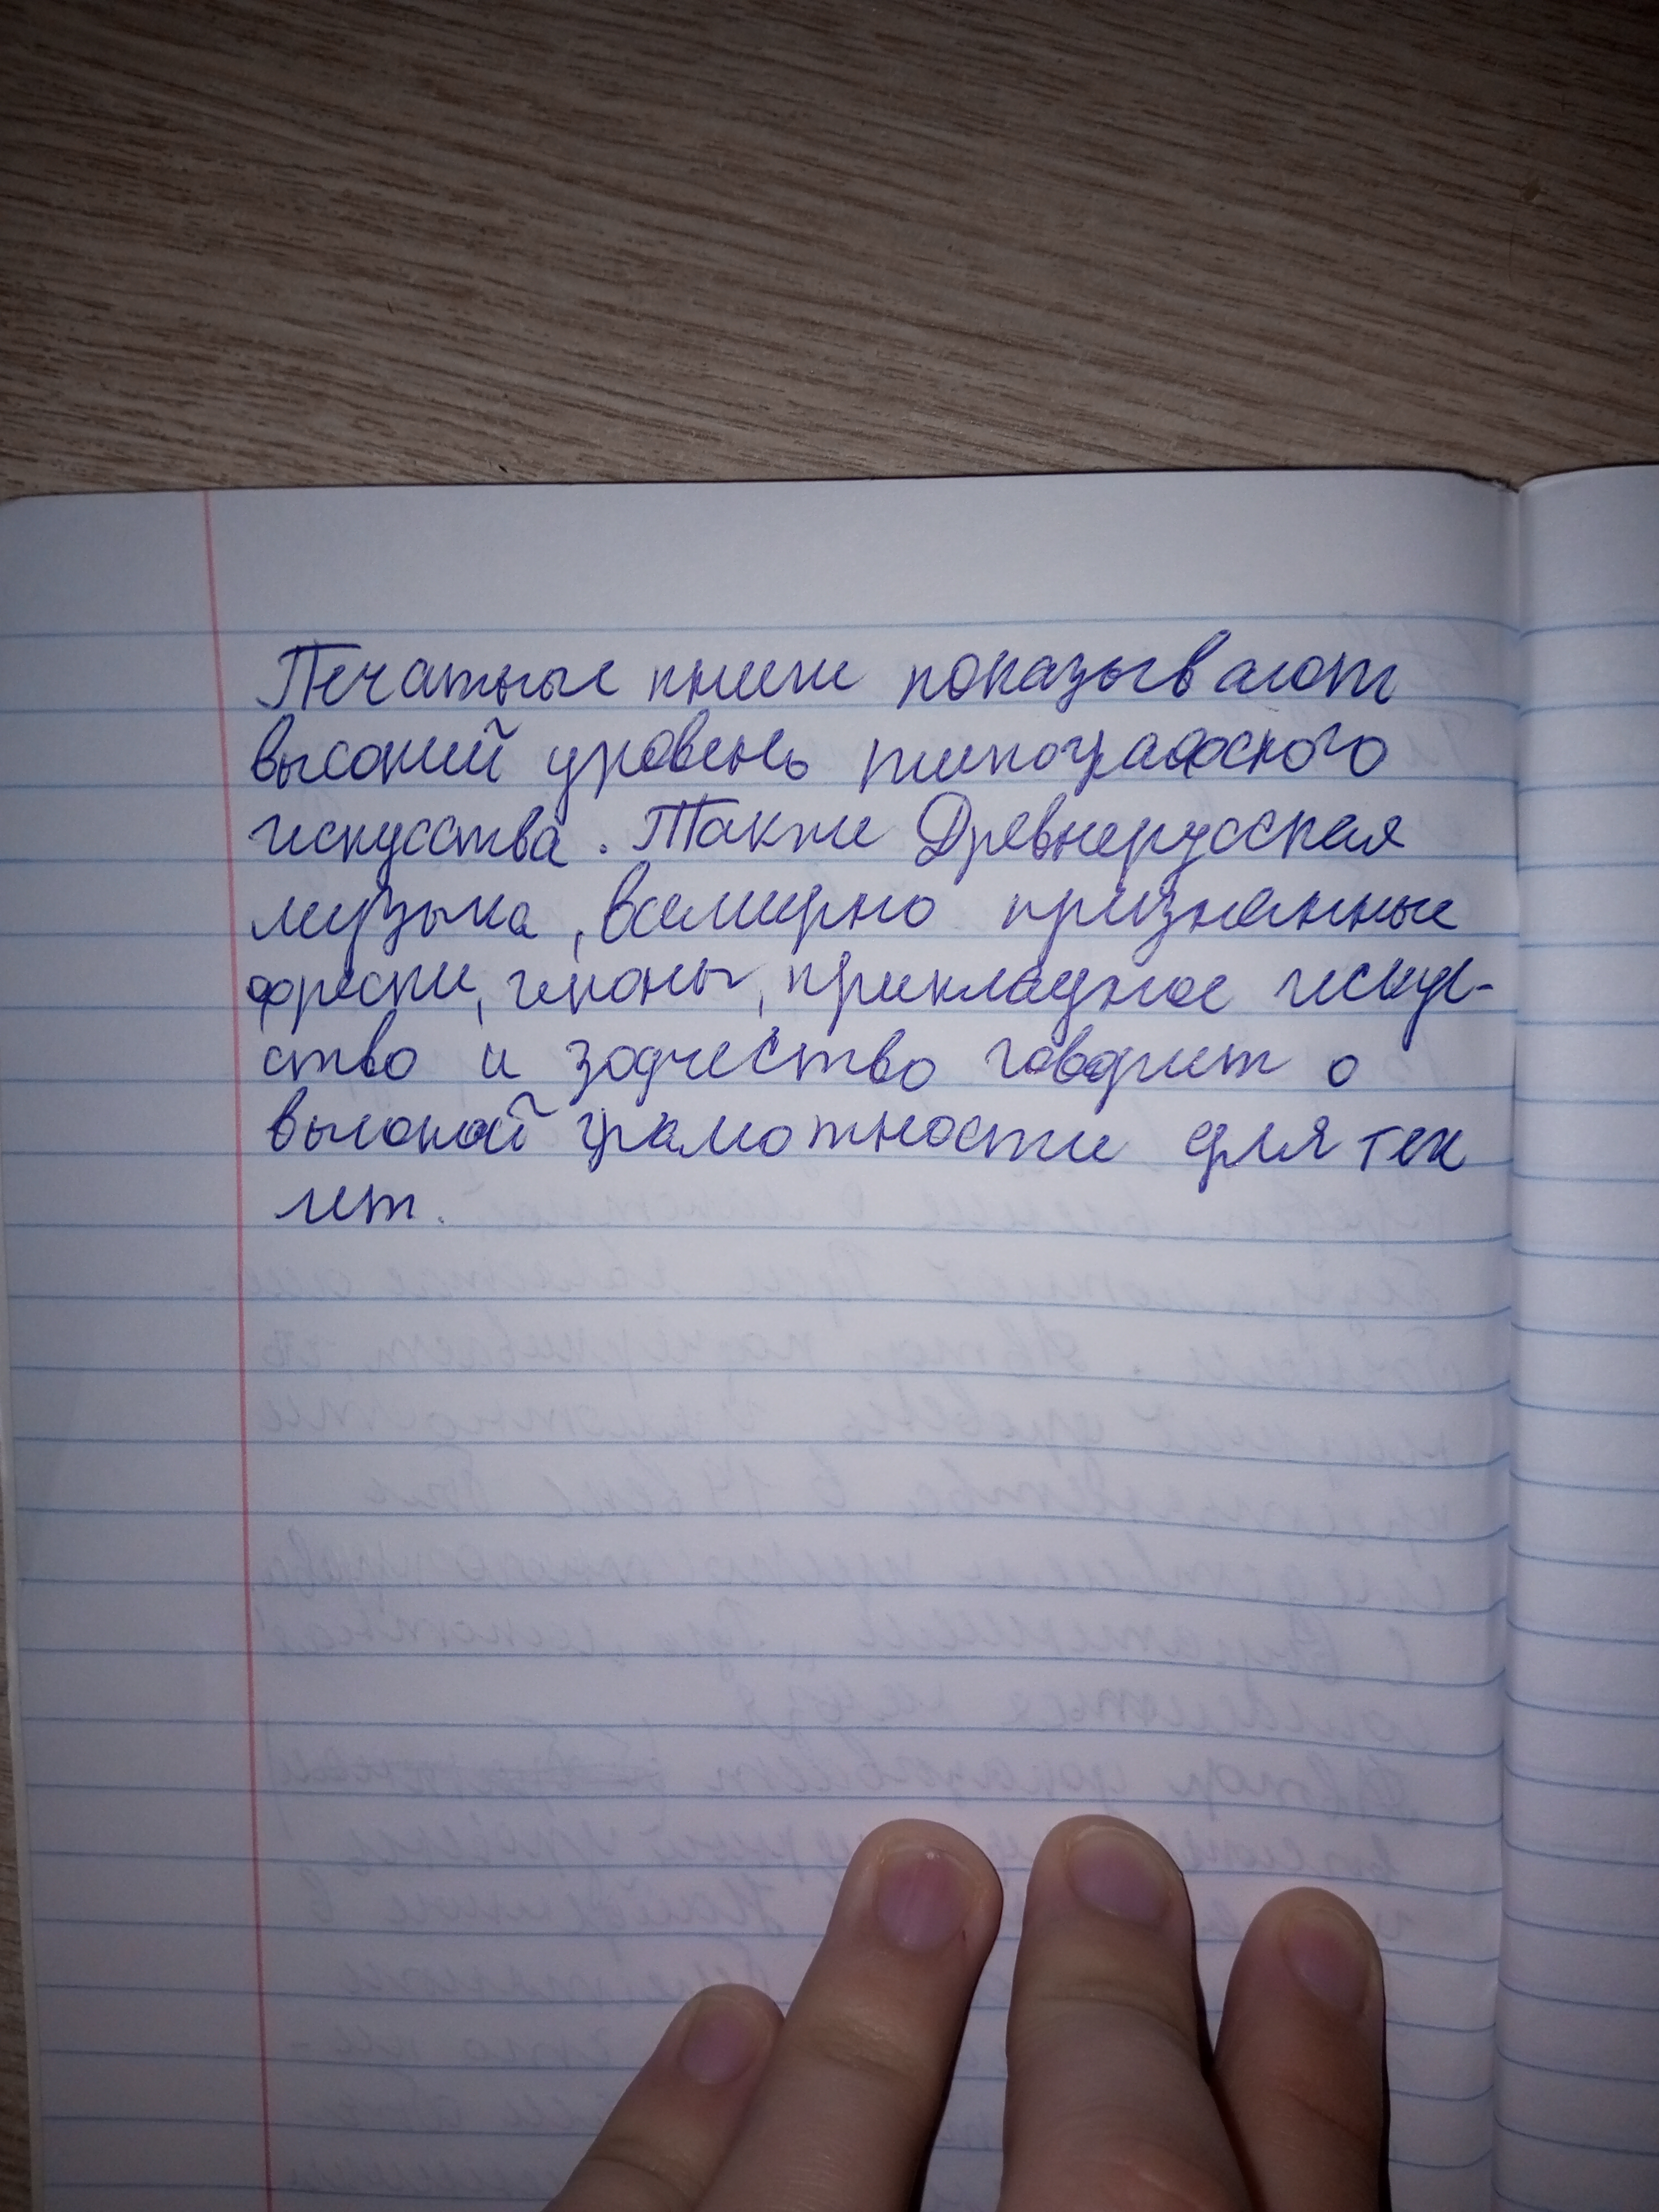 Печатные книги показывают
высокий уровень типографского
искусства. Также Древнерусская
музыка, всемирно признанные
фрески, иконы, прикладное искус-
ство и зодчество говорит о
высокой грамотности для тех
лет.